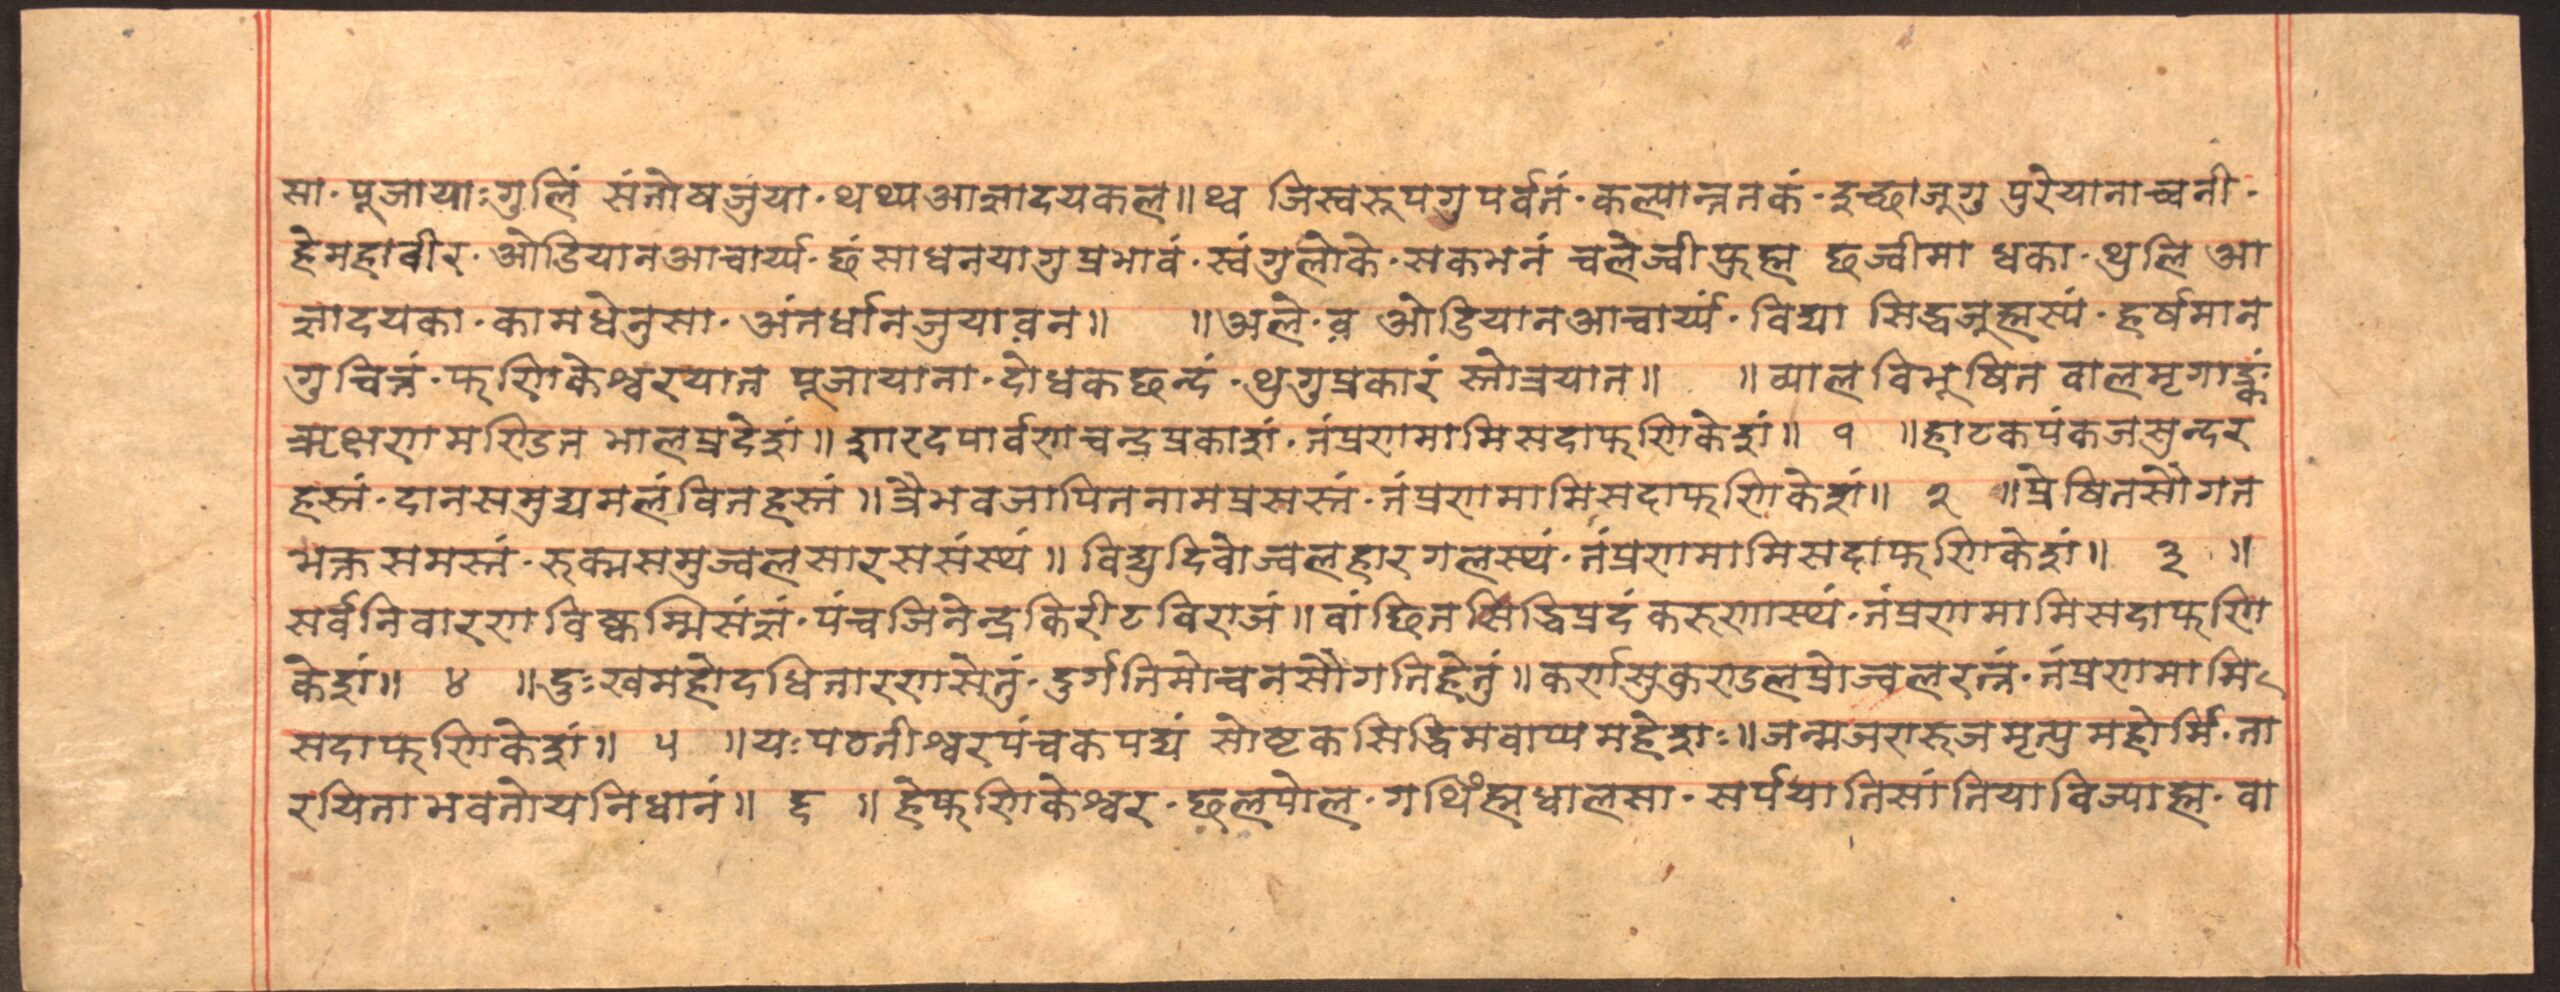 सा· पूजायाःगुलिं संतोषजुंया· थथ्यआज्ञादयकल॥ थ्व जिस्वरूपगुपर्वतं· कल्पान्ततकं· इच्छाजूगु पुरेयानाच्वनी·
हेमहावीर· ओडियानआचार्य्य· छंसाधनयागुप्रभावं· स्वंगुलोके· सकभनं चलेज्वीफुह्म छज्वीमा धका· थुलि आ
ज्ञादयका· कामधेनुसा· अंतर्धानजुयावन॥ ॥अले· व ओडियानआचार्य्यं· विद्या सिद्धजूह्मस्यं· हर्षमान
गुचित्तं· फणिकेश्वरयात पूजायाना· दोधकछन्दं· थुगुप्रकारं स्तोत्रयात॥ ॥व्यालविभूषित वालमृगाङ्कं
ऋक्षगणमण्डित भालप्रदेशं॥ शारदपार्वणचन्द्रप्रकाशं· तंप्रणमामिसदाफणिकेशं॥ १ ॥हाटकपंकजसुन्दर
हस्तं· दानसमुद्यमलंवितहस्तं॥ त्रैभवजापितनामप्रसस्तं· तंप्रणमामिसदाफणिकेशं॥ २ ॥प्रेषितसौगत
भक्तसमस्तं· रुक्मसमुज्वलसारससंस्थं॥ विद्युदिवोज्वलहारगलस्थं· तंप्रणमामिसदाफणिकेशं॥ ३ ॥
सर्वनिवारणविष्कम्मिसंज्ञं· पंचजिनेन्द्रकिरीटविराजं॥ वांछितसिद्धिप्रदंकरुणास्थं· तंप्रणमामिसदाफणि
केशं॥ ४ ॥दुःखमहोदधितारणसेतुं· दुर्गतिमोचनसौगतिहेतुं॥ कर्णसुकुण्डलप्रोज्वलरत्नं· तंप्रणमामि
सदाफणिकेशं॥ ५ ॥यःपठतीश्वरपंचकपद्यं सोष्टकसिद्धिमवाप्यमहेशः॥ जन्मजरारुजमृत्युमहोर्मि· ता
रयिताभवतोयनिधानं॥ ६ ॥ हेफणिकेश्वर· छलपोल· गथिंह्मधालसा· सर्पयातिसांतियाविज्याह्म· वा